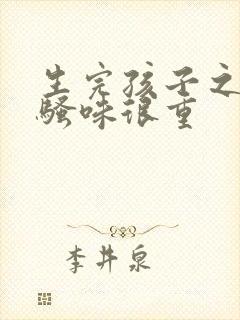 生完孩子之
骚味很重
李井泉